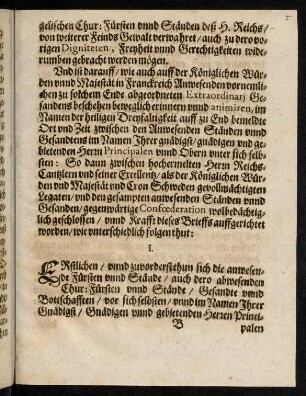 gelischen Chur: Fürsten vnnd Ständen deß H. Reichs/
von weiterer Feinds Gewalt verwahret/ auch zu dero vo-
rigen Digniteten, Freyheit vnnd Gerechtigkeiten wide-
rumben gebracht werden mögen.
Vnd ist darauff/ wie auch auff der Königlichen Wür-
den vnnd Majestät in Franckreich Anwesenden vornemli-
chen zu solchem Ende abgeordneten Extraordinarj Ge-
sandens beschehen beweglich erinnern vnnd animiren, im
Namen der heiligen Dreyfaltigkeit auff zu End bemeldte
Ort vnd Zeit zwischen den Anwesenden Ständen vnnd
Gesandtens im Namen Ihrer gnädigst/ gnädigen vnd ge-
bietenden Herrn Principalen vnnd Obern vnter sich selb-
sten: So dann zwischen hochermelten Herrn Reichs-
Cantzlern vnd seiner Excellentz/ als der Königlichen Wür-
den vnd Majestät vnd Cron Schweden gevollmächtigten
Legaten/ vnd den gesampten anwesenden Ständen vnnd
Gesanden/ gegenwärtige Confœderation wolbedächtig-
lich geschlossen/ vnnd Krafft dieses Brieffs auffgerichtet
worden/ wie vnterschiedlich folget thut:
I.
ERstlichen/ vnnd zuvorderst thun sich die anwesen-
de Fürsten vnnd Stände/ auch dero abwesenden
Chur: Fürsten vnnd Stände/ Gesandte vnnd
Botschafften/ vor sich selbsten/ vnnd im Namen Ihrer
Gnädigst/ Gnädigen vnnd gebietenden Herren Princi-
B palen